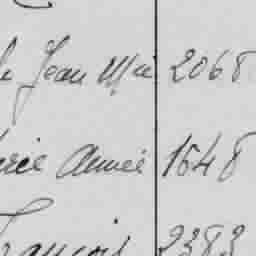 Jean Mie 2068
Aimée 1648
François 2383